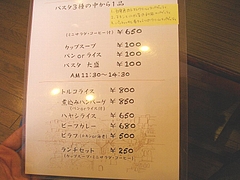 パスタ3種の中から1品
(ミニサラダ・コーヒー付) ¥650
カップスープ ¥100
パンorライス ¥100
パスタ 大盛 ¥100
AM11:30~14:30
トルコライス ¥800
煮込みハンバーグ ¥850
(パンorライス付)
ハヤシライス ¥650
ビーフカレー ¥680
ピラフ ¥500
ランチセット ¥250
(カップスープ・ミニサラダ・コーヒー)